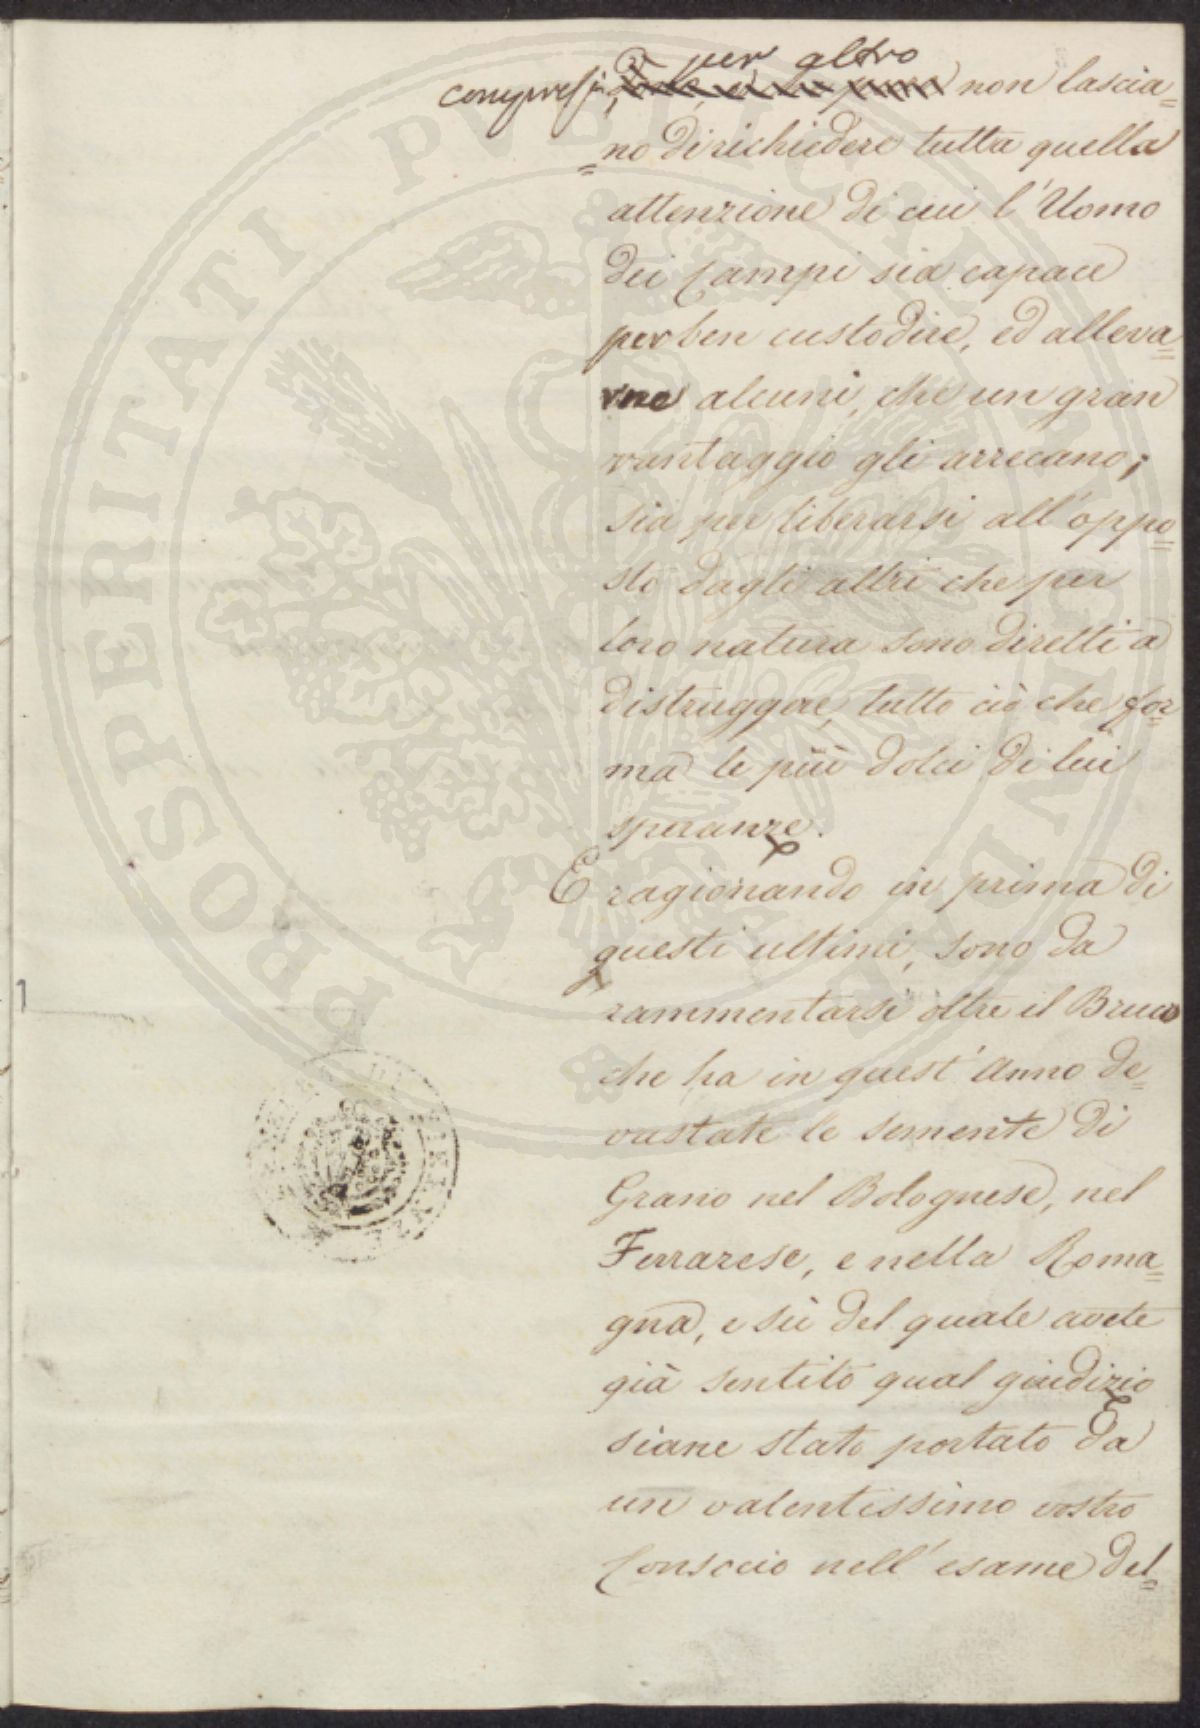 per altro
compresi, non lascia=
=no di richiedere tutta quella
attenzione di cui l'Uomo
dei Campi sia capace
per ben custodire, ed alleva=
rne alcuni, che un gran
vantaggio gli arrecano;
sia per liberarsi all'oppo=
sto dagli altri che per
loro natura sono diretti a
distruggere tutto ciò che for=
ma le più dolci di lui
speranze.
E ragionando in prima di
questi ultimi, sono da
rammentarsi oltre il Bruco
che ha in quest'Anno de=
vastate le semente di
Grano nel Bolognese, nel
Ferrarese, e nella Roma=
gna, e sù del quale avete
già sentito qual giudizio
siane stato portato da
un valentissimo vostro
Consocio nell'esame del=
PROSPERITATI PUBLICAE AUGENDAE